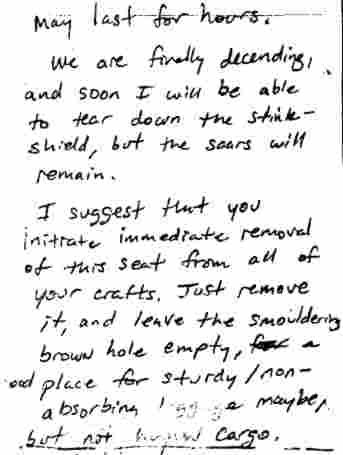 May last for hours.
We are finally decending,
and soon I will be able
to tear down the stink-
shield, but the scars will
remain.
I suggest that you
initrate immediate removal
of this seat from all of
your crafts. Just remove
it, and leave the smouldering
brown hole empty, a
place for sturdy/non-
absorbing maybe,
but not cargo.